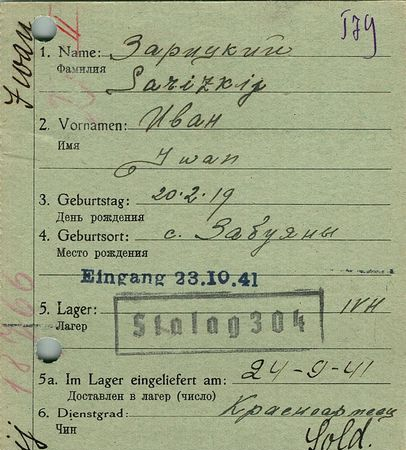 179
II
1. Name: Зарицкий
Фамилия
Sarizkij
2. Vornamen: Иван
Имя
Iwan
3. Geburtstag: 20·2·19
День рождения
4. Geburtsort: с. Забуяны
Место рождения
Eingang 23.10.41
5. Lager: IVH
Лагер
Stalag 304
5a. Im Lager eingeliefert am: 24-9-41
Доставлен в лагер (число)
6. Dienstgrad: Красноармеец
Чин
Sold.
Iwan